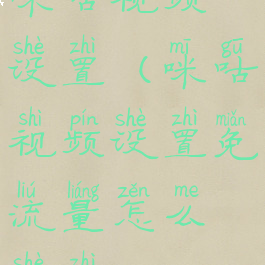 咪咕视频
shè zhì mī gū
设置(咪咕
shì pín shè zhì miǎn
视频设置免
liú liàng zěn me
流量怎么
shè zhì